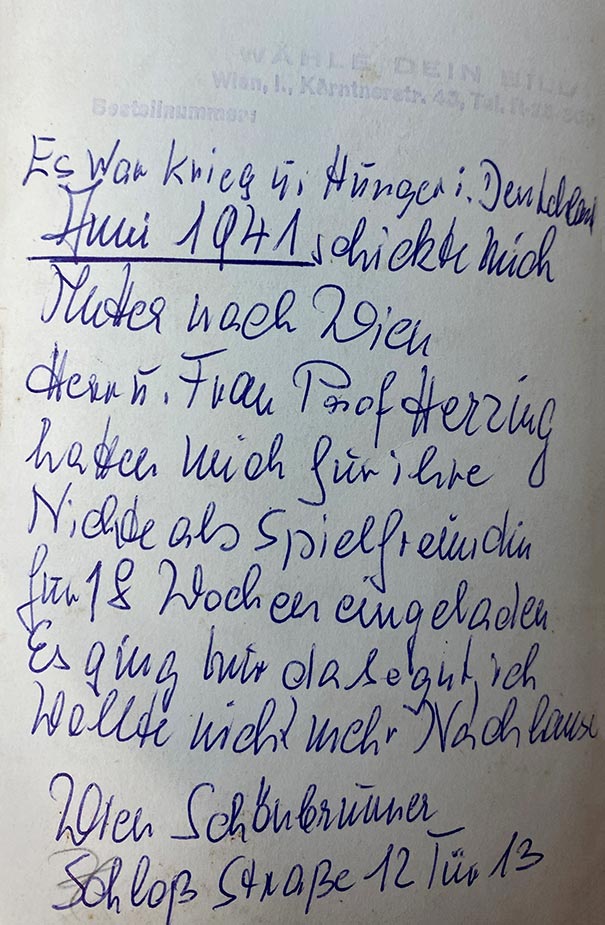 WÄHLE DEIN BILD
Wien, I., Kärntnerstr. 43, Tel. R-28-
Bestellnummer:
Es war Krieg u. Hunger i. Deutschland
Juni 1941 schickte mich
Mutter nach Wien
Herr u. Frau Prof Herzing
hatten mich für ihre
Nichte als Spielfreundin
für 18 Wochen eingeladen
Es ging mir da so gut, ich
wollte nicht mehr Nachhause
Wien Schönbrunner
Schloß Straße 12 Tür 13